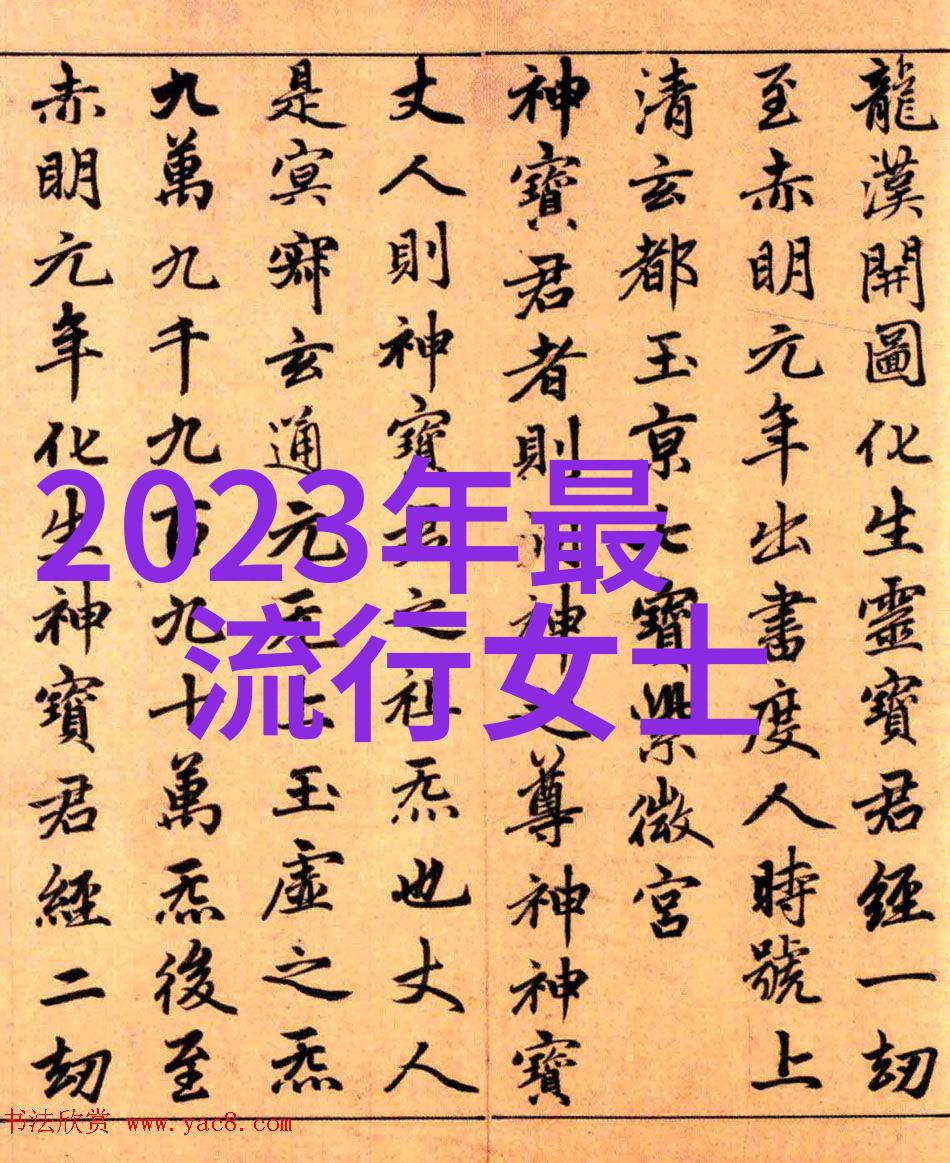 龍漢開圖化生靈寶君經一劫
至赤明元年出書度人時號上
清玄都玉京七寶紫微宮
神寶君者則洞神之尊神神寶
丈人則神寶君之祖炁也丈人
是冥寂玄通元无上玉虛之炁
九萬九千九百九十萬炁後至
赤明元年化生神寶君經二劫
2023年最
流行女士
书法欣赏 www.yac8.com